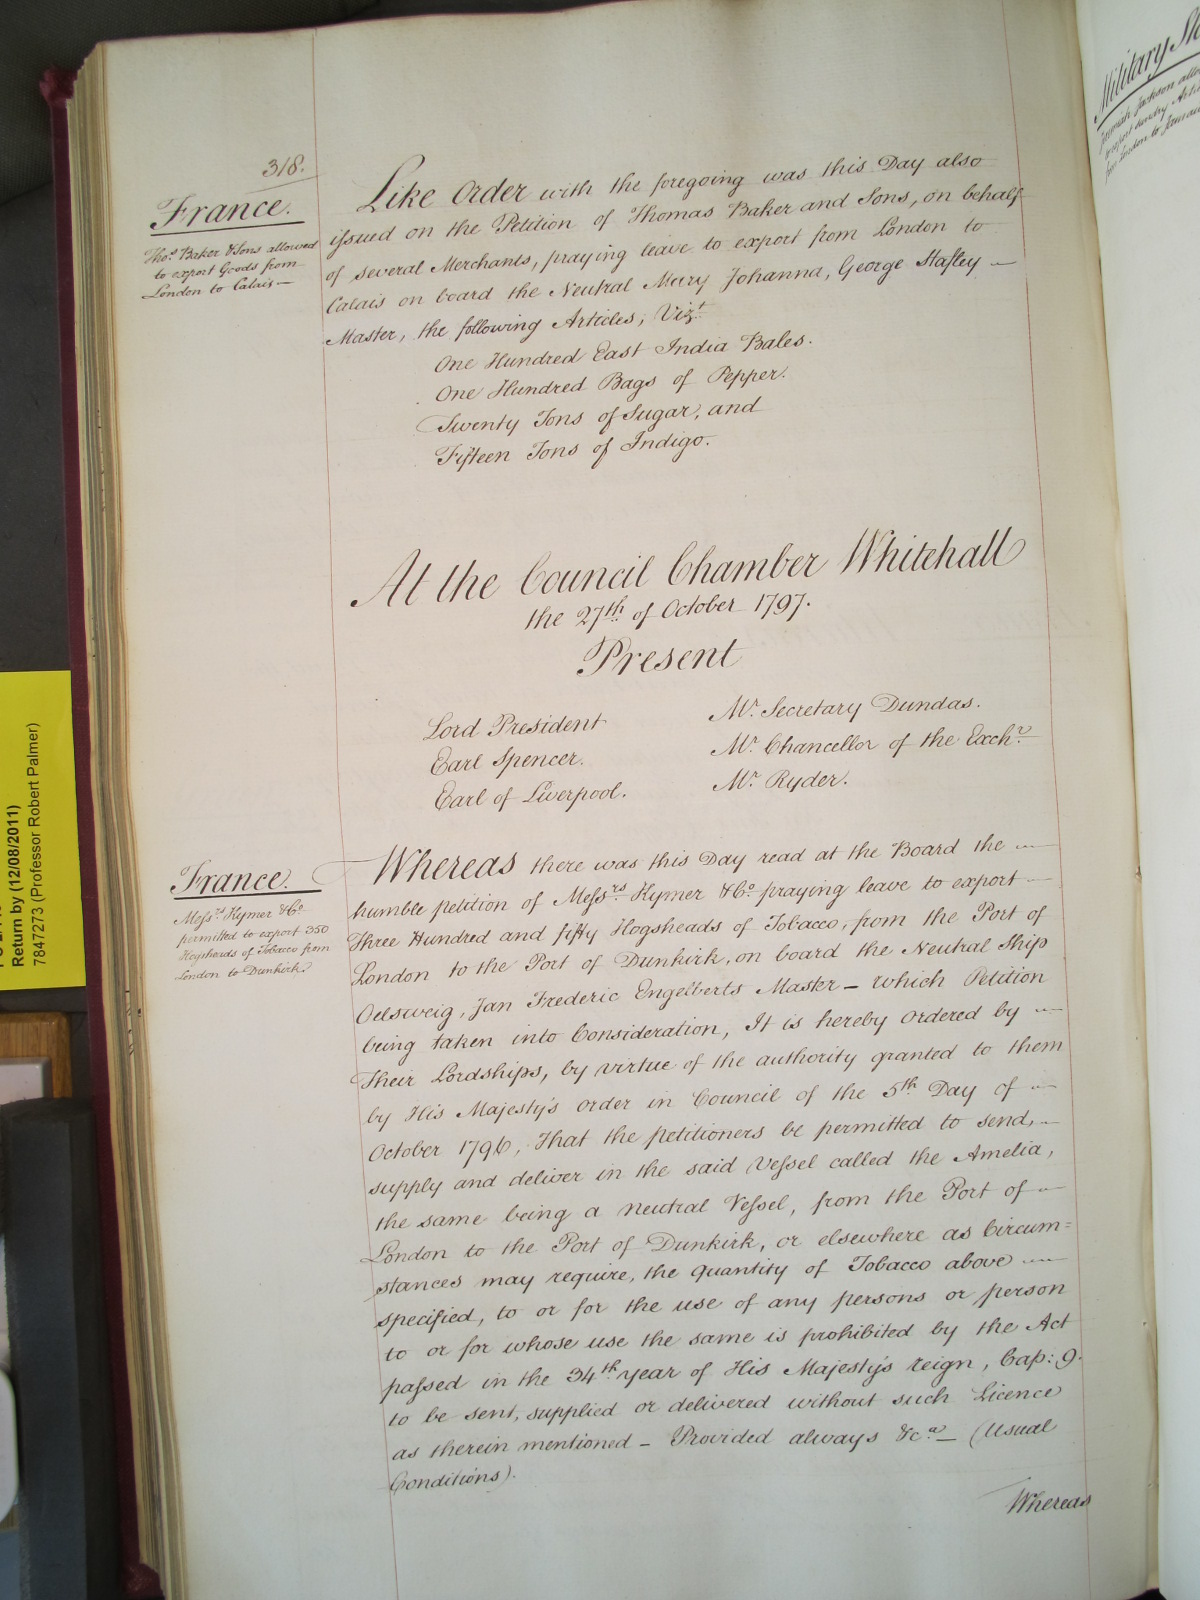 318.
France.
Thos. Baker & Sons allowed
to export Goods from
London to Calais —
Like Order with the foregoing was this Day also
issued on the Petition of Thomas Baker and Sons, on behalf
of several Merchants, praying leave to export from London to
Calais on board the Neutral Mary Johanna, George Stafley —
Master, the following Articles; Vizt.
One Hundred East India Bales.
One Hundred Bags of Pepper.
Twenty Tons of Sugar, and
Fifteen Tons of Indigo.
At the Council Chamber Whitehall
the 27th of October 1797.
Present
Lord President
Earl Spencer.
Earl of Liverpool.
Mr. Secretary Dundas.
Mr. Chancellor of the Exchr.
Mr. Ryder.
France.
Messrs. Kymer & Co.
permitted to export 350
Hogsheads of Tobacco from
London to Dunkirk.
Whereas there was this Day read at the Board the —
humble petition of Messrs. Kymer & Co. praying leave to export —
Three Hundred and fifty Hogsheads of Tobacco, from the Port of
London to the Port of Dunkirk, on board the Neutral Ship
Oelsweig, Jan Frederic Engelberts Master — which Petition
being taken into Consideration, It is hereby ordered by —
Their Lordships, by virtue of the authority granted to them
by His Majesty's Order in Council of the 5th Day of —
October 1796, That the petitioners be permitted to send, —
supply and deliver in the said Vessel called the Amelia,
the same being a neutral Vessel, from the Port of —
London to the Port of Dunkirk, or elsewhere as Circum=
stances may require, the quantity of Tobacco above —
specified, to or for the use of any persons or person
to or for whose use the same is prohibited by the Act
passed in the 34th year of His Majesty's reign, Cap: 9.
to be sent, supplied or delivered without such Licence
as therein mentioned — Provided always &ca — (Usual
Conditions).
Whereas
Military St
Jeremiah Jackson
export sundry
London to
Return by (12/08/2011)
7847273 (Professor Robert Palmer)